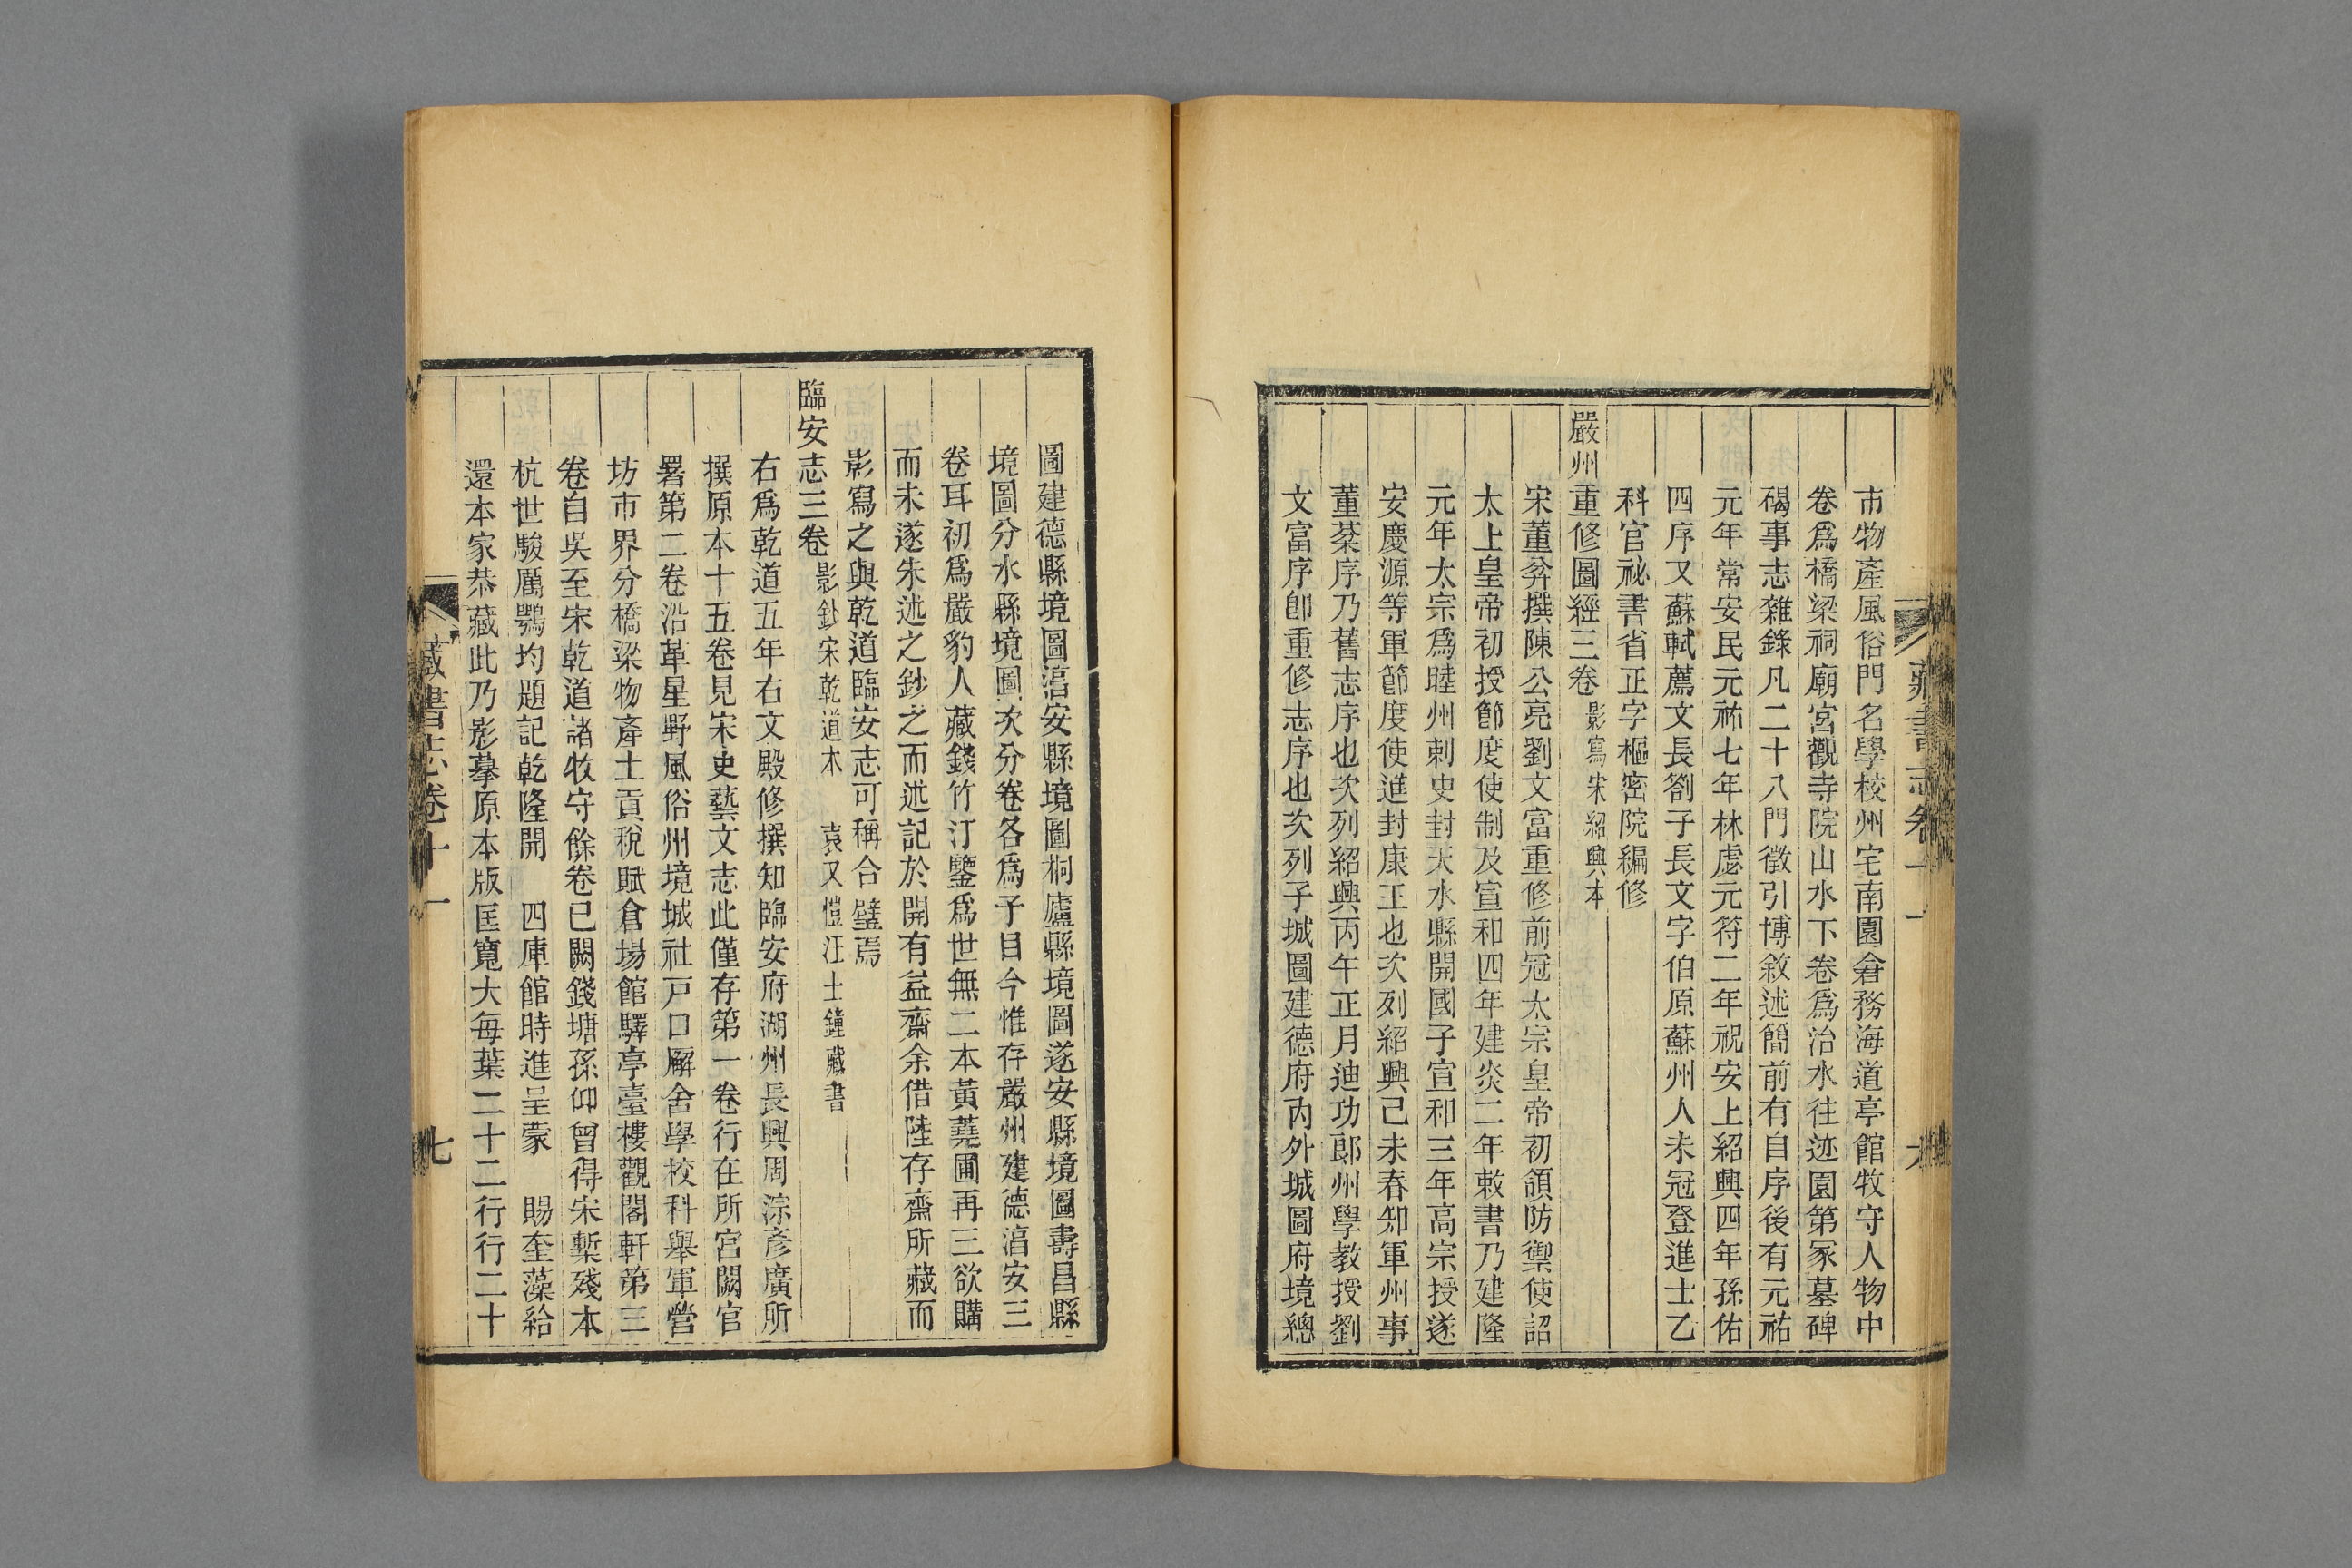 市物產風俗門名學校州宅南園倉務海道亭館牧守人物中
卷爲橋梁祠廟宮觀寺院山水下卷爲治水往迹園第冢墓碑
碣事志雜錄凡二十八門徵引博敘述簡前有自序後有元祐
元年常安民元祐七年林虙元符二年祝安上紹興四年孫佑
四序又蘇軾薦文長劄子長文字伯原蘇州人未冠登進士乙
科官祕書省正字樞密院編修
嚴州重修圖經三卷 影寫宋紹興本
宋董弅撰陳公亮劉文富重修前冠太宗皇帝初領防禦使詔
太上皇帝初授節度使制及宣和四年建炎二年敕書乃建隆
元年太宗爲睦州刺史封天水縣開國子宣和三年高宗授遂
安慶源等軍節度使進封康王也次列紹興己未春知軍州事
董棻序乃舊志序也次列紹興丙午正月迪功郎州學教授劉
文富序卽重修志序也次列子城圖建德府內外城圖府境總
藏書志卷十一
圖建德縣境圖湻安縣境圖桐廬縣境圖遂安縣境圖壽昌縣
境圖分水縣境圖次分卷各爲子目今惟存嚴州建德湻安三
卷耳初爲嚴豹人藏錢竹汀鑒爲世無二本黃蕘圃再三欲購
而未遂朱述之鈔之而述記於開有益齋余借陸存齋所藏而
影寫之與乾道臨安志可稱合璧焉
臨安志三卷 影鈔宋乾道本 袁又愷汪士鐘藏書
右爲乾道五年右文殿修撰知臨安府湖州長興周淙彥廣所
撰原本十五卷見宋史藝文志此僅存第一卷行在所宮闕官
署第二卷沿革星野風俗州境城社戸口廨舍學校科舉軍營
坊市界分橋梁物產土貢稅賦倉場館驛亭臺樓觀閣軒第三
卷自吳至宋乾道諸牧守餘卷已闕錢塘孫仰曾得宋槧殘本
杭世駿厲鶚均題記乾隆開 四庫館時進呈蒙 賜奎藻給
還本家恭藏此乃影摹原本版匡寬大每葉二十二行行二十
藏書志卷十一 七